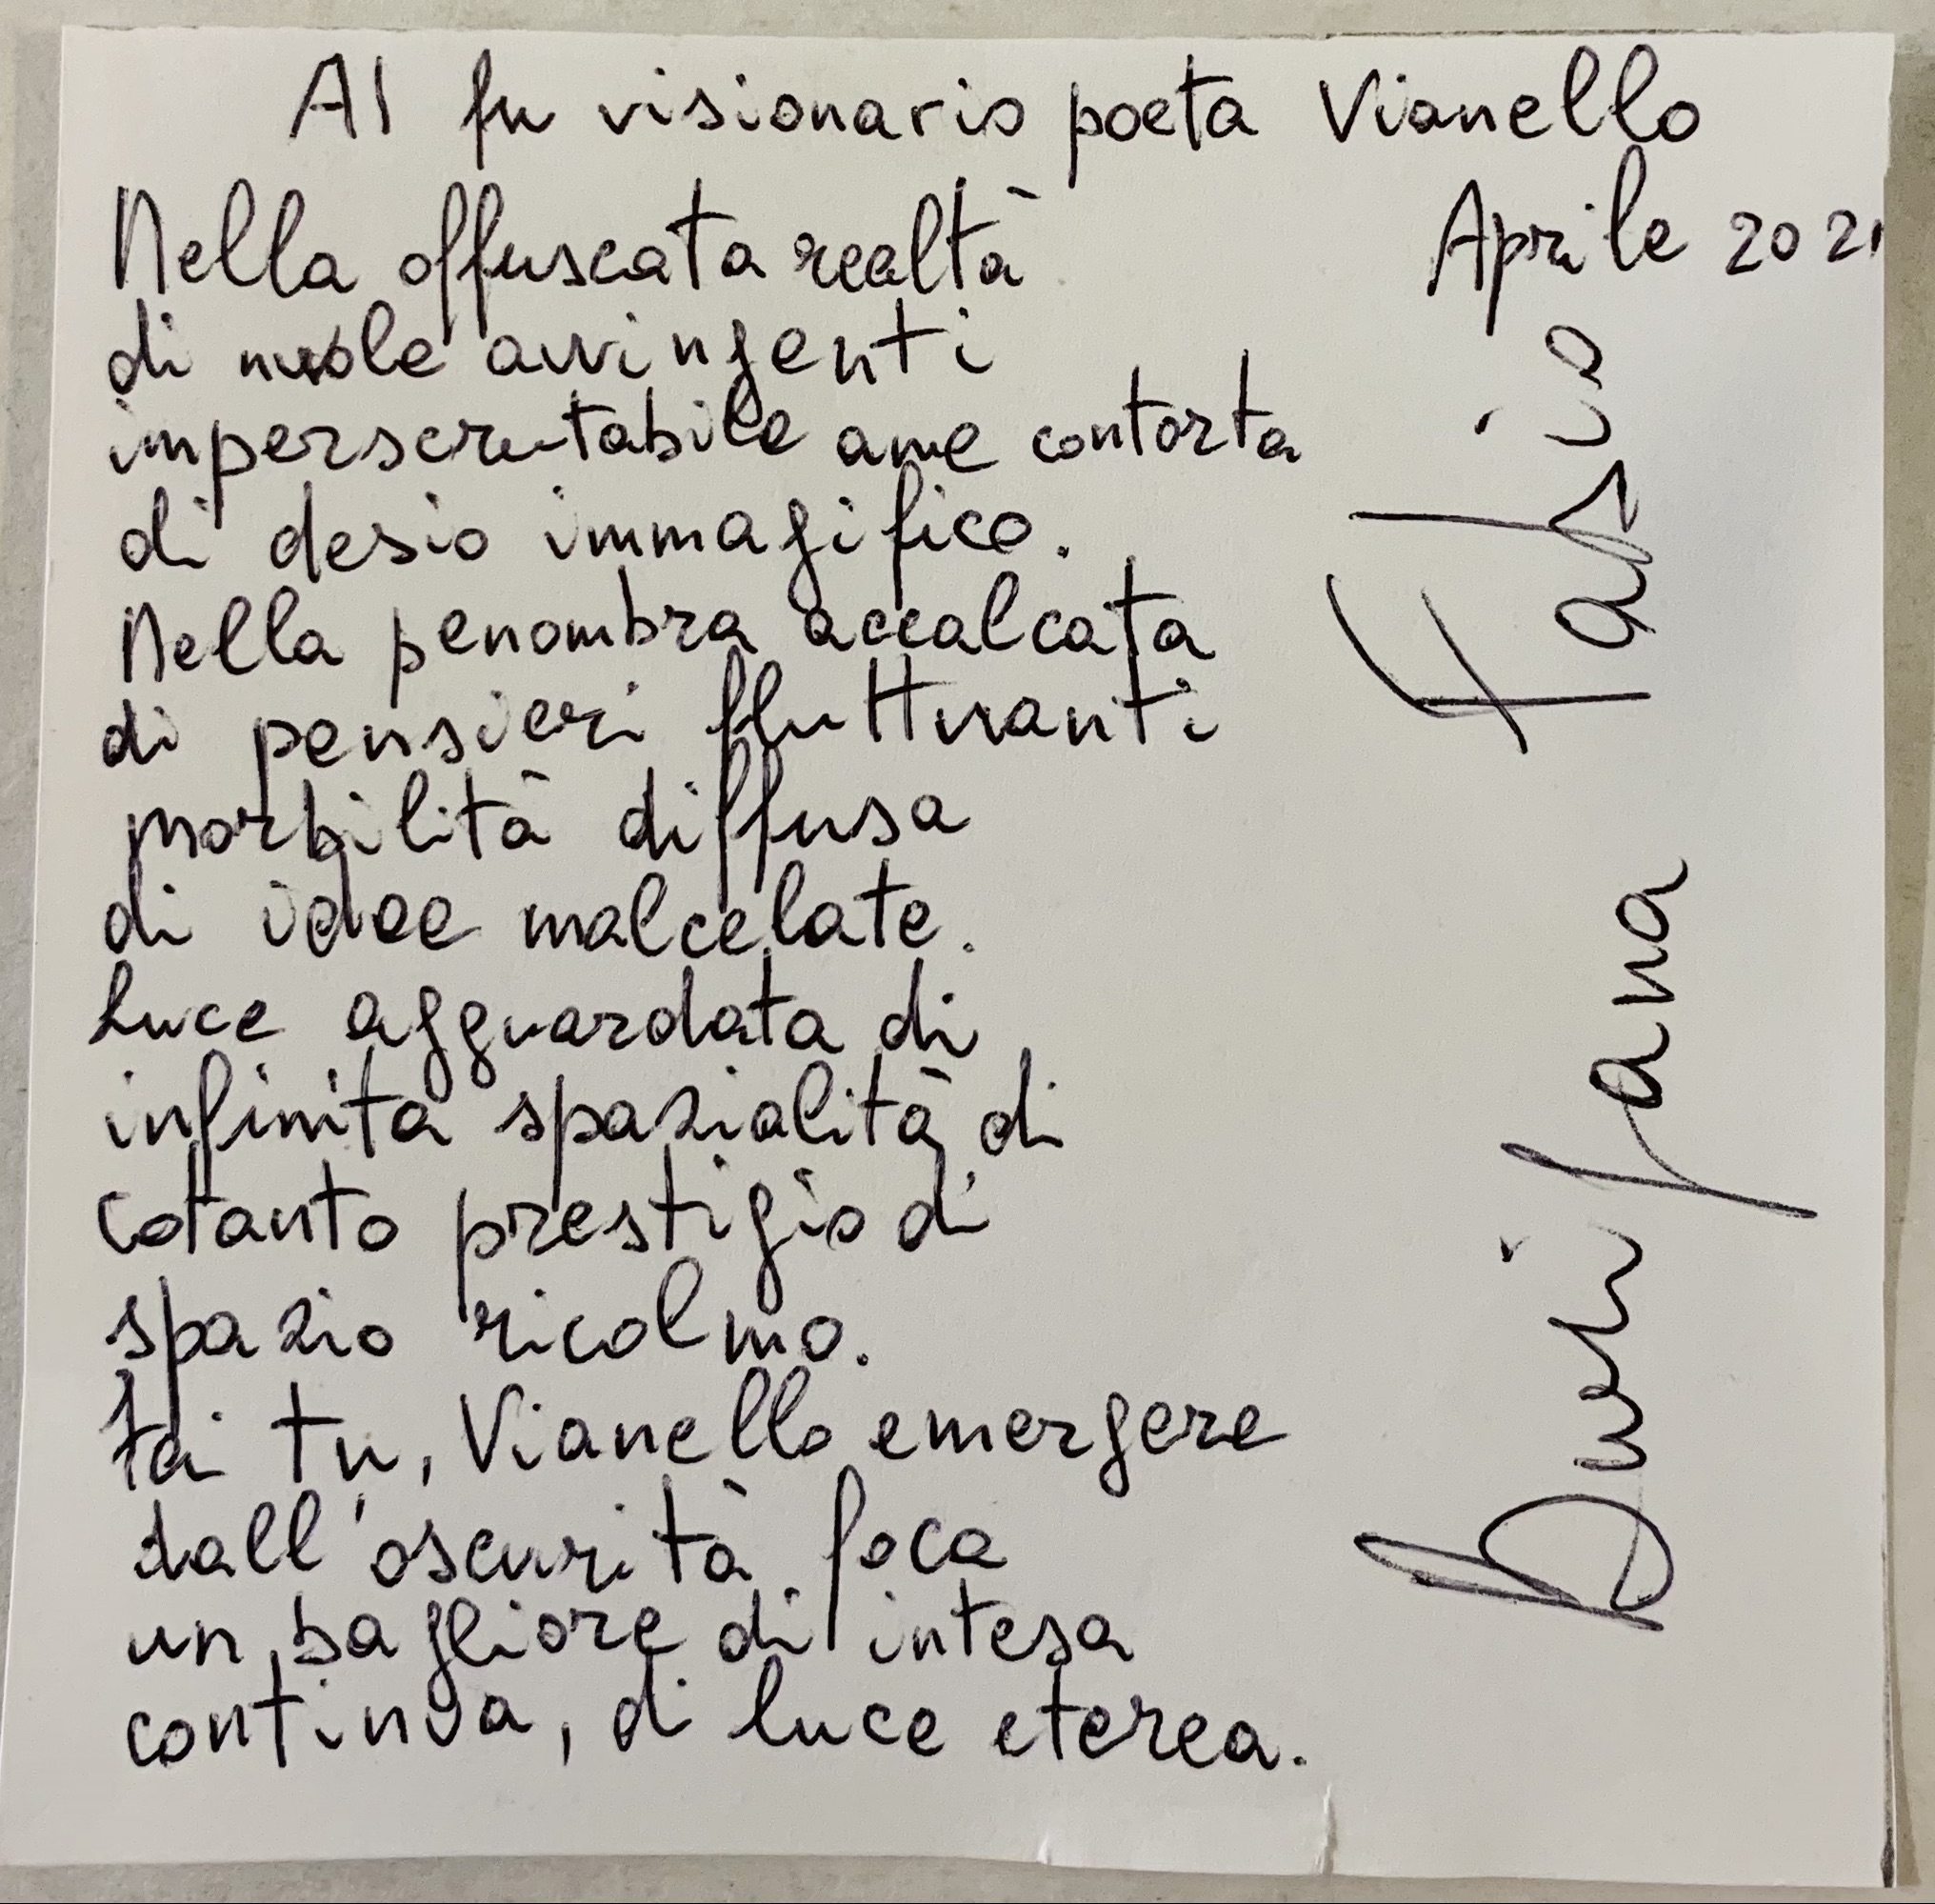 Al fu visionario poeta Vianello
Aprile 2021
Nella offuscata realtà
di nuvole avvingenti
imperscrutabile ame contorta
di desio immagifico.
Nella penombra accalcata
di pensieri fluttuanti
morbilità diffusa
di idee malcelate.
Luce agguardata di
infinita spazialità di
cotanto prestigio di
spazio ricolmo.
Fai tu, Vianello emergere
dall'oscurità foca
un bagliore di intesa
continua, di luce eterea.
Fabio